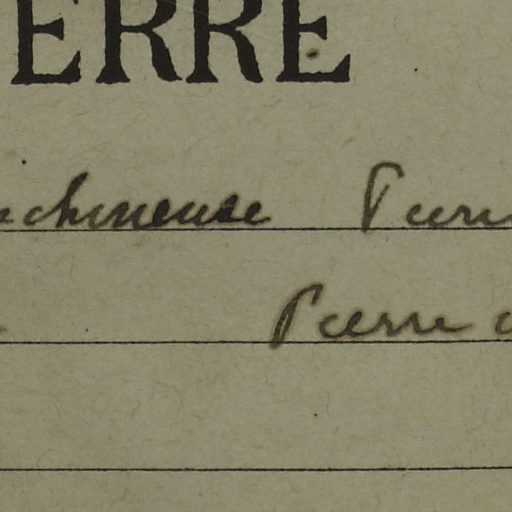 ERRE
chineuse Pierre
Pierre